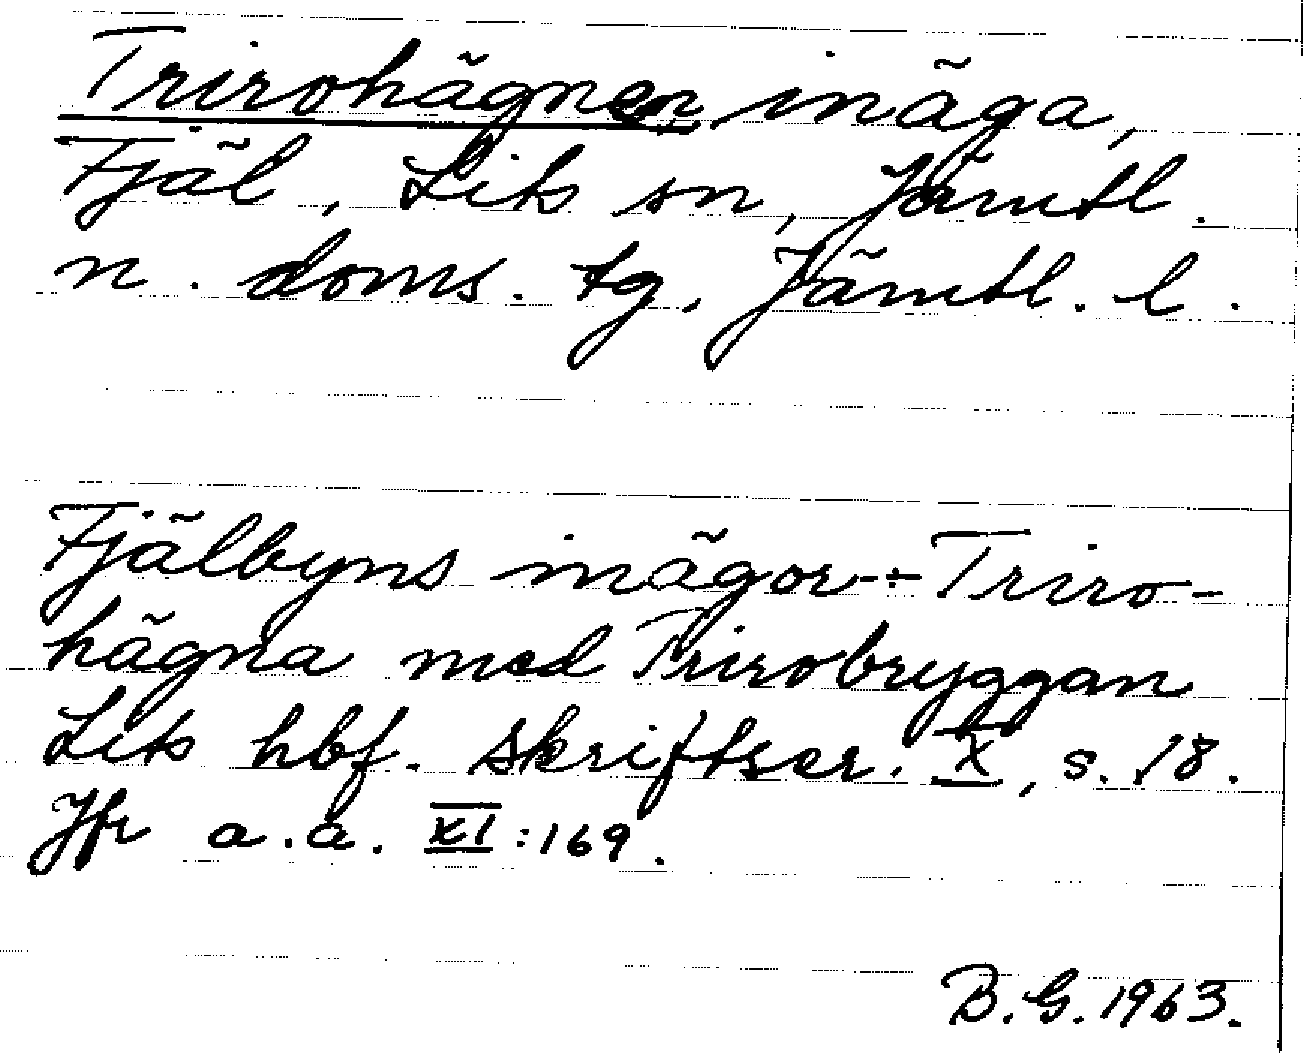 Trirohägnen, inäga,
Fjäl, Lits sn, Jämtl.
n. doms. tg, Jämtl. l.
Fjälbyns inägor -÷ Triro-
hägna med Trirobryggan
Lits hbf. skriftser. X, s. 18.
Jfr a.a. XI:169.
B.G. 1963.